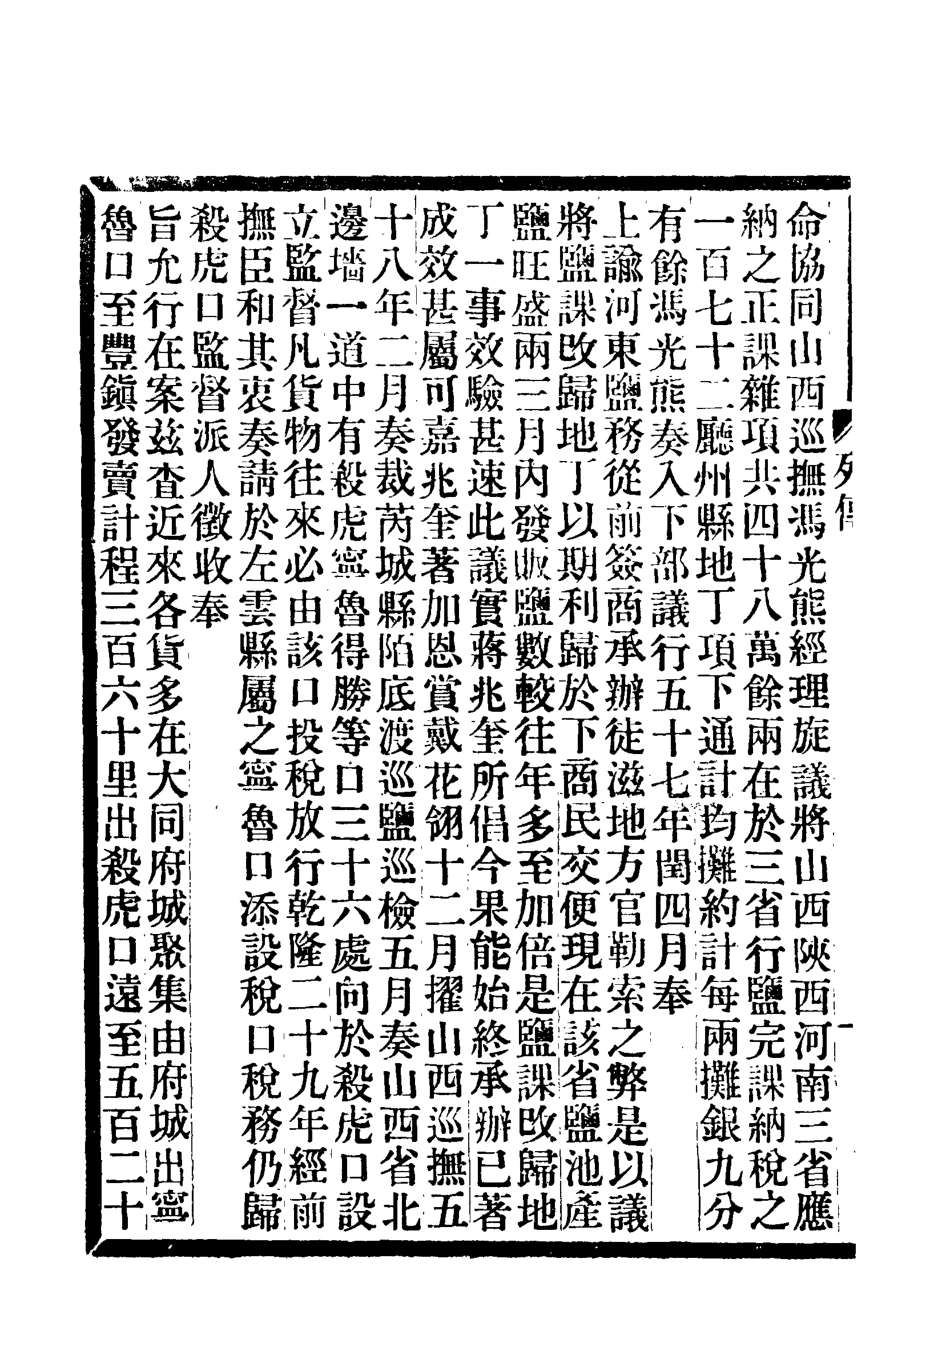 列傳
命協同山西巡撫馮光熊經理旋議將山西陝西河南三省應
納之正課雜項共四十八萬餘兩在於三省行鹽完課納稅之
一百七十二廳州縣地丁項下通計均攤約計每兩攤銀九分
有餘馮光熊奏入下部議行五十七年閏四月奉
上諭河東鹽務從前簽商承辦徒滋地方官勒索之弊是以議
將鹽課改歸地丁以期利歸於下商民交便現在該省鹽池產
鹽旺盛兩三月內發販鹽數較往年多至加倍是鹽課改歸地
丁一事效驗甚速此議實蔣兆奎所倡今果能始終承辦已著
成效甚屬可嘉兆奎著加恩賞戴花翎十二月擢山西巡撫五
十八年二月奏裁芮城縣陌底渡巡鹽巡檢五月奏山西省北
邊墻一道中有殺虎寧魯得勝等口三十六處向於殺虎口設
立監督凡貨物往來必由該口投稅放行乾隆二十九年經前
撫臣和其衷奏請於左雲縣屬之寧魯口添設稅口稅務仍歸
殺虎口監督派人徵收奉
旨允行在案茲查近來各貨多在大同府城聚集由府城出寧
魯口至豐鎮發賣計程三百六十里出殺虎口遠至五百二十